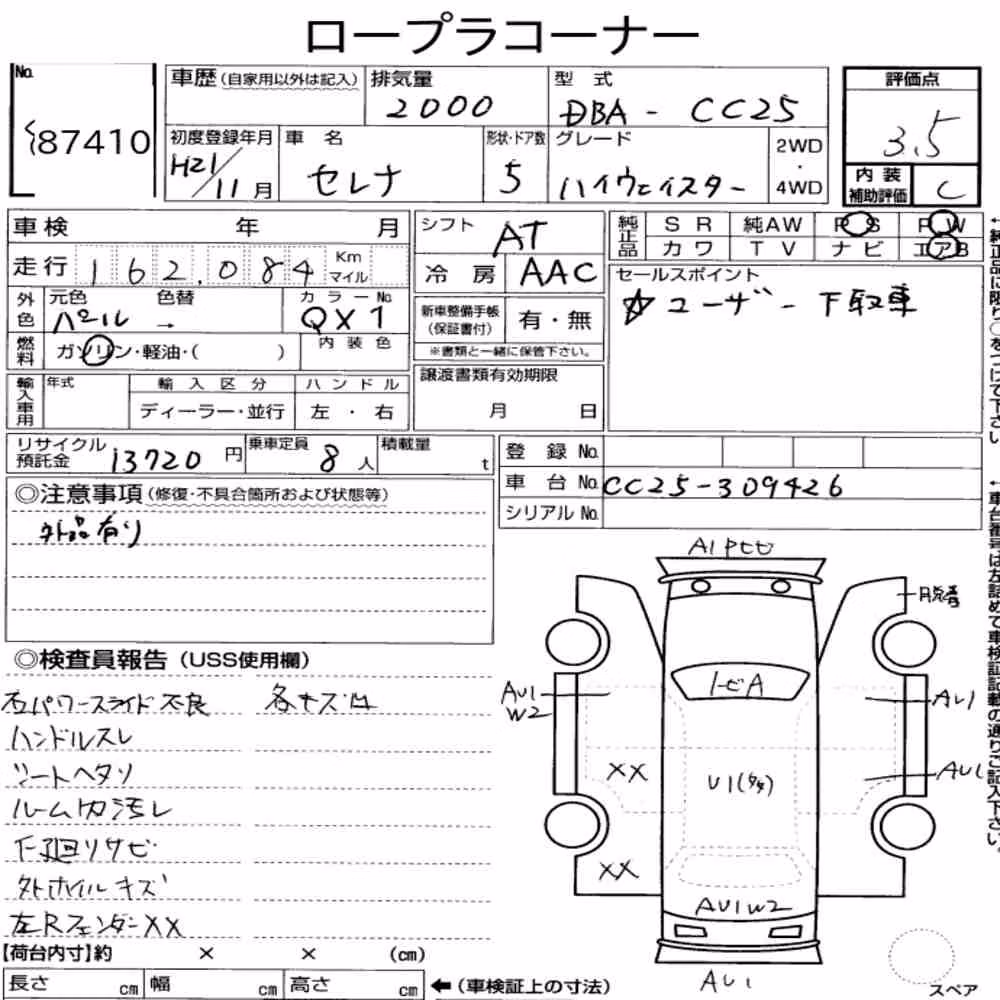 ロープラコーナー
No.
87410
車歴(自家用以外は記入) 排気量 型 式 評価点
2000 DBA - CC25 3.5
初度登録年月 車 名 形状・ドア数 グレード 2WD・4WD 内 装 補助評価
H21/11月 セレナ 5 ハイウェイスター C
車検 年 月 シフト AT 純正品 S R 純AW P S P W
カワ T V ナビ エアB
走行 162,084 Km マイル 冷 房 AAC セールスポイント
☆ユーザー下取車
外色 元色 色替 カラーNo.
パール → QX1
新車整備手帳(保証書付) 有・無
※書類と一緒に保管下さい。
燃料 ガソリン・軽油・( ) 内 装 色
譲渡書類有効期限
月 日
輸入車用 年式 輸 入 区 分 ハ ン ド ル
ディーラー・並行 左 ・ 右
リサイクル預託金 13720円 乗車定員 8人 積載量 t
登 録 No.
車 台 No. CC25-309426
シリアル No.
◎注意事項(修復・不具合箇所および状態等)
外品有り
◎検査員報告(USS使用欄)
右パワースライド不良 各キズ凹
ハンドルスレ
シートヘタリ
ルーム内汚レ
下廻リサビ
外ホイルキズ
左RフェンダーXX
【荷台内寸】約 × × (cm)
長さ cm 幅 cm 高さ cm ←(車検証上の寸法)
A1
トビA
AU1
W2
XX
XX
U1(多)
AU1
AU1
AU1W2
AU1
スペア
←純正品に限り○をつけて下さい
←車台番号は左詰めで車検証記載の通りご記入下さい。